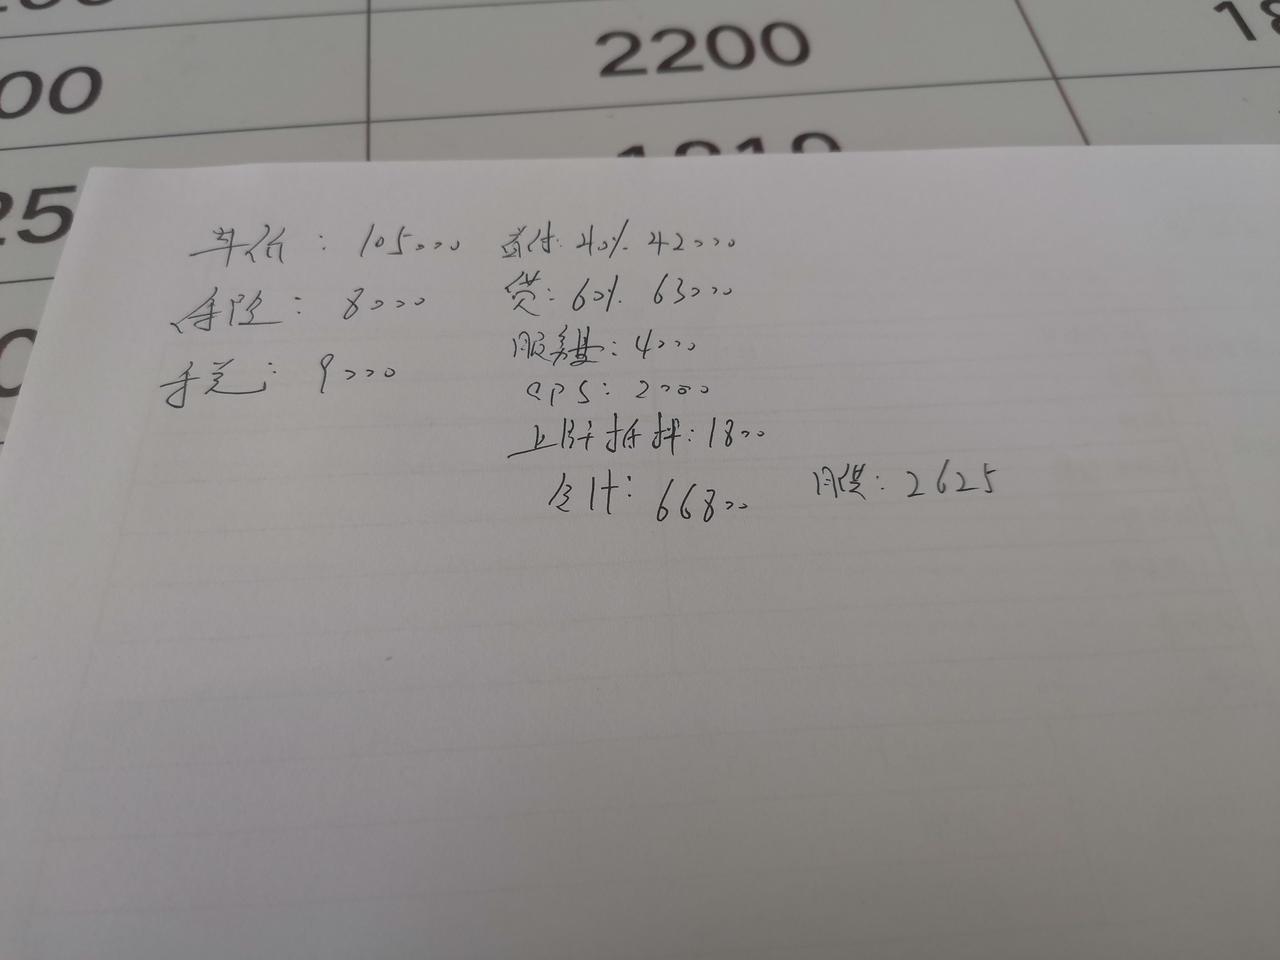 00
2200
18
25
1910
车价：105000 首付：40% 42000
保险：8000 贷：60% 63000
手党：9000 服务费：4000
GPS：2000
上牌抵押：1800
合计：66800 月供：2625